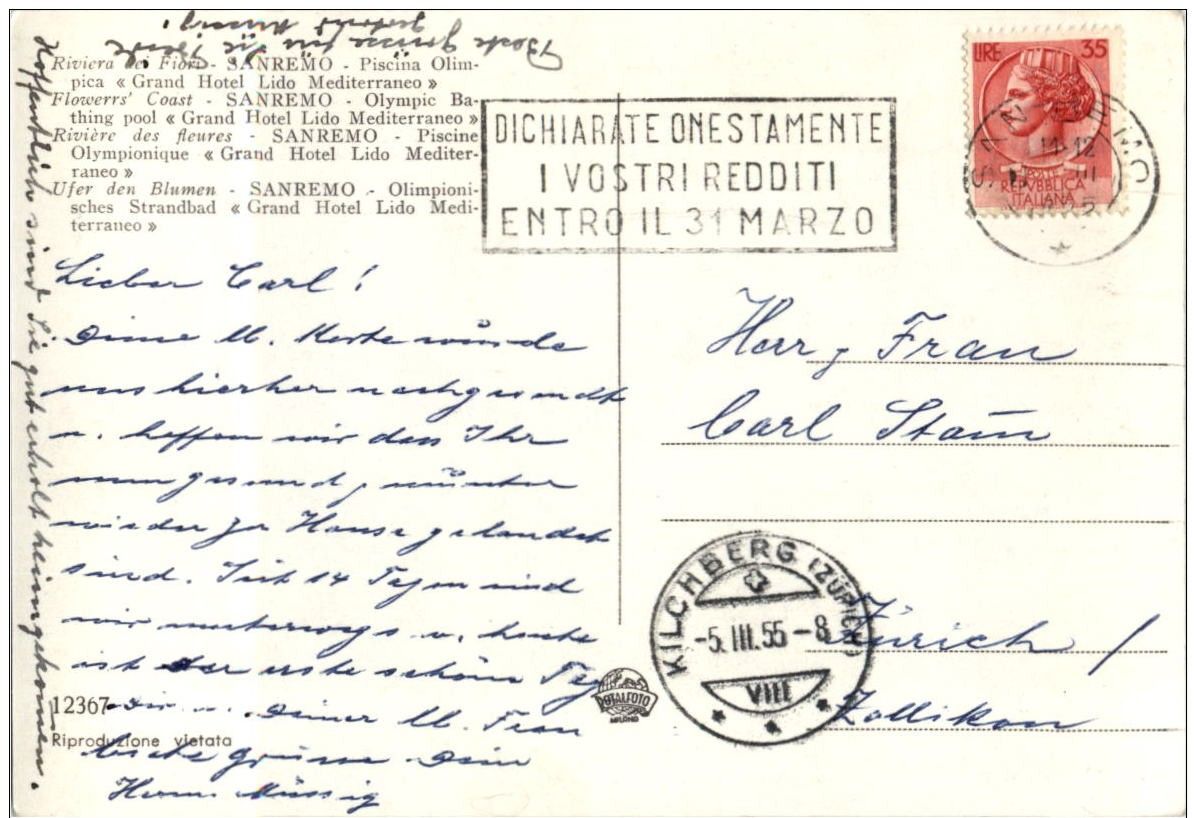 Riviera dei Fiori - SANREMO - Piscina Olim-
pica « Grand Hotel Lido Mediterraneo »
Flowerrs' Coast - SANREMO - Olympic Ba-
thing pool « Grand Hotel Lido Mediterraneo »
Rivière des fleures - SANREMO - Piscine
Olympionique « Grand Hotel Lido Mediter-
raneo »
Ufer den Blumen - SANREMO - Olimpioni-
sches Strandbad « Grand Hotel Lido Medi-
terraneo »
DICHIARATE ONESTAMENTE
I VOSTRI REDDITI
ENTRO IL 31 MARZO
LIRE 35
POSTE
REPVBBLICA
ITALIANA
SANREMO
11-12
Lieber Carl!
Deine lb. Karte wurde
uns hierher nachgesandt
u. hoffen wir dass Ihr
nun gesund, munter
wieder zu Hause gelandet
sind. Seit 14 Tagen sind
wir unterwegs u. heute
ist der erste schöne Tag
Dir u. Deiner lb. Frau
beste Grüsse Dein
Herm. Müssig
Hoffentlich sind Sie gut erholt heimgekommen.
Beste Grüsse für Sie Beide
Müssig
Herr, Frau
Carl Stam
Zürich /
Zollikon
KILCHBERG (ZÜRICH)
-5.III.55-8
VIII
ROTALFOTO
MILANO
12367
Riproduzione vietata